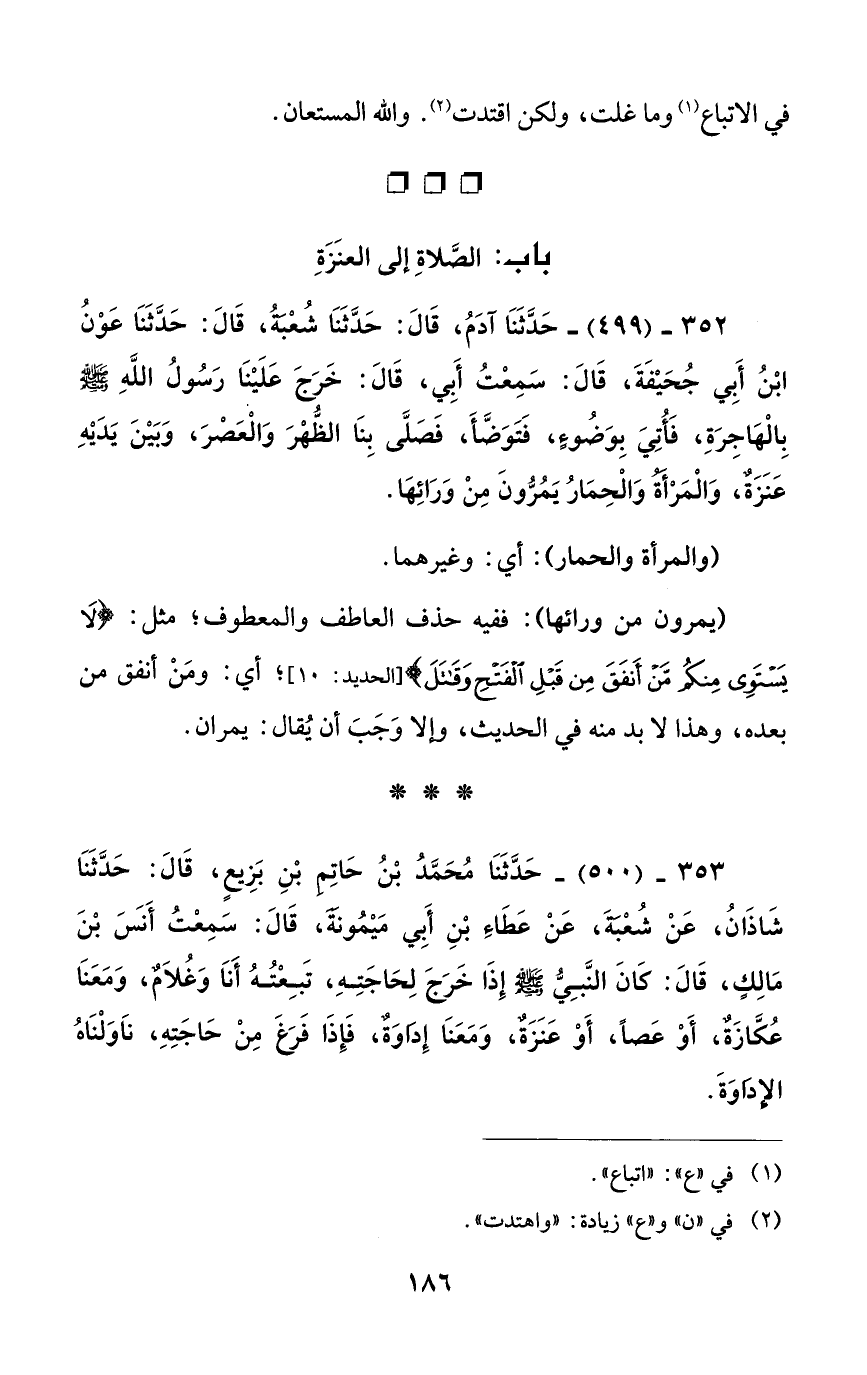 في الاتباع(١) وما غلت، ولكن اقتدت(٢). والله المستعان.
باب: الصَّلاةِ إلى العنَزَةِ
٣٥٢ ـ (٤٩٩) ـ حَدَّثَنَا آدَمُ، قَالَ: حَدَّثَنَا شُعْبَةُ، قَالَ: حَدَّثَنَا عَوْنُ
ابْنُ أَبِي جُحَيْفَةَ، قَالَ: سَمِعْتُ أَبِي، قَالَ: خَرَجَ عَلَيْنَا رَسُولُ اللَّهِ ﷺ
بِالْهَاجِرَةِ، فَأُتِيَ بِوَضُوءٍ، فَتَوَضَّأَ، فَصَلَّى بِنَا الظُّهْرَ وَالْعَصْرَ، وَبَيْنَ يَدَيْهِ
عَنَزَةٌ، وَالْمَرْأَةُ وَالْحِمَارُ يَمُرُّونَ مِنْ وَرَائِهَا.
(والمرأة والحمار): أي: وغيرهما.
(يمرون من ورائها): ففيه حذف العاطف والمعطوف؛ مثل: ﴿لَا
يَسْتَوِي مِنكُم مَّنْ أَنفَقَ مِن قَبْلِ ٱلْفَتْحِ وَقَٰتَلَ﴾[الحديد: ١٠]؛ أي: ومَنْ أنفق من
بعده، وهذا لا بد منه في الحديث، وإلا وَجَبَ أن يُقال: يمران.
* * *
٣٥٣ ـ (٥٠٠) ـ حَدَّثَنَا مُحَمَّدُ بْنُ حَاتِمِ بْنِ بَزِيعٍ، قَالَ: حَدَّثَنَا
شَاذَانُ، عَنْ شُعْبَةَ، عَنْ عَطَاءِ بْنِ أَبِي مَيْمُونَةَ، قَالَ: سَمِعْتُ أَنَسَ بْنَ
مَالِكٍ، قَالَ: كَانَ النَّبِيُّ ﷺ إِذَا خَرَجَ لِحَاجَتِهِ، تَبِعْتُهُ أَنَا وَغُلَامٌ، وَمَعَنَا
عُكَّازَةٌ، أَوْ عَصاً، أَوْ عَنَزَةٌ، وَمَعَنَا إِدَاوَةٌ، فَإِذَا فَرَغَ مِنْ حَاجَتِهِ، نَاوَلْنَاهُ
الإِدَاوَةَ.
(١) في «ع»: «اتباع».
(٢) في «ن» و«ع» زيادة: «واهتدت».
١٨٦